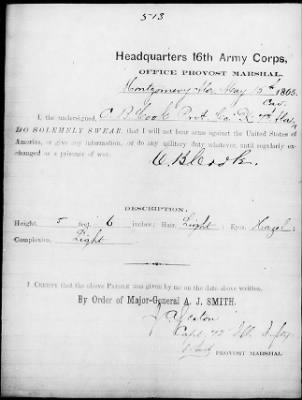 513
Headquarters 16th Army Corps,
OFFICE PROVOST MARSHAL,
Montgomery Ala May 13th 1865
Cav.
I, the undersigned, C. B. Cook Pvt Co. K 7th Ala
DO SOLEMNLY SWEAR, that I will not bear arms against the United States of
America, or give any information, or do any military duty whatever, until regularly ex-
changed as a prisoner of war.
C. B. Cook.
DESCRIPTION.
Height, 5 feet, 6 inches; Hair, Light; Eyes, Hazel;
Complexion, Light
I CERTIFY that the above PAROLE was given by me on the date above written.
By Order of Major-General A. J. SMITH.
Capt 72 Ill Infty
PROVOST MARSHAL